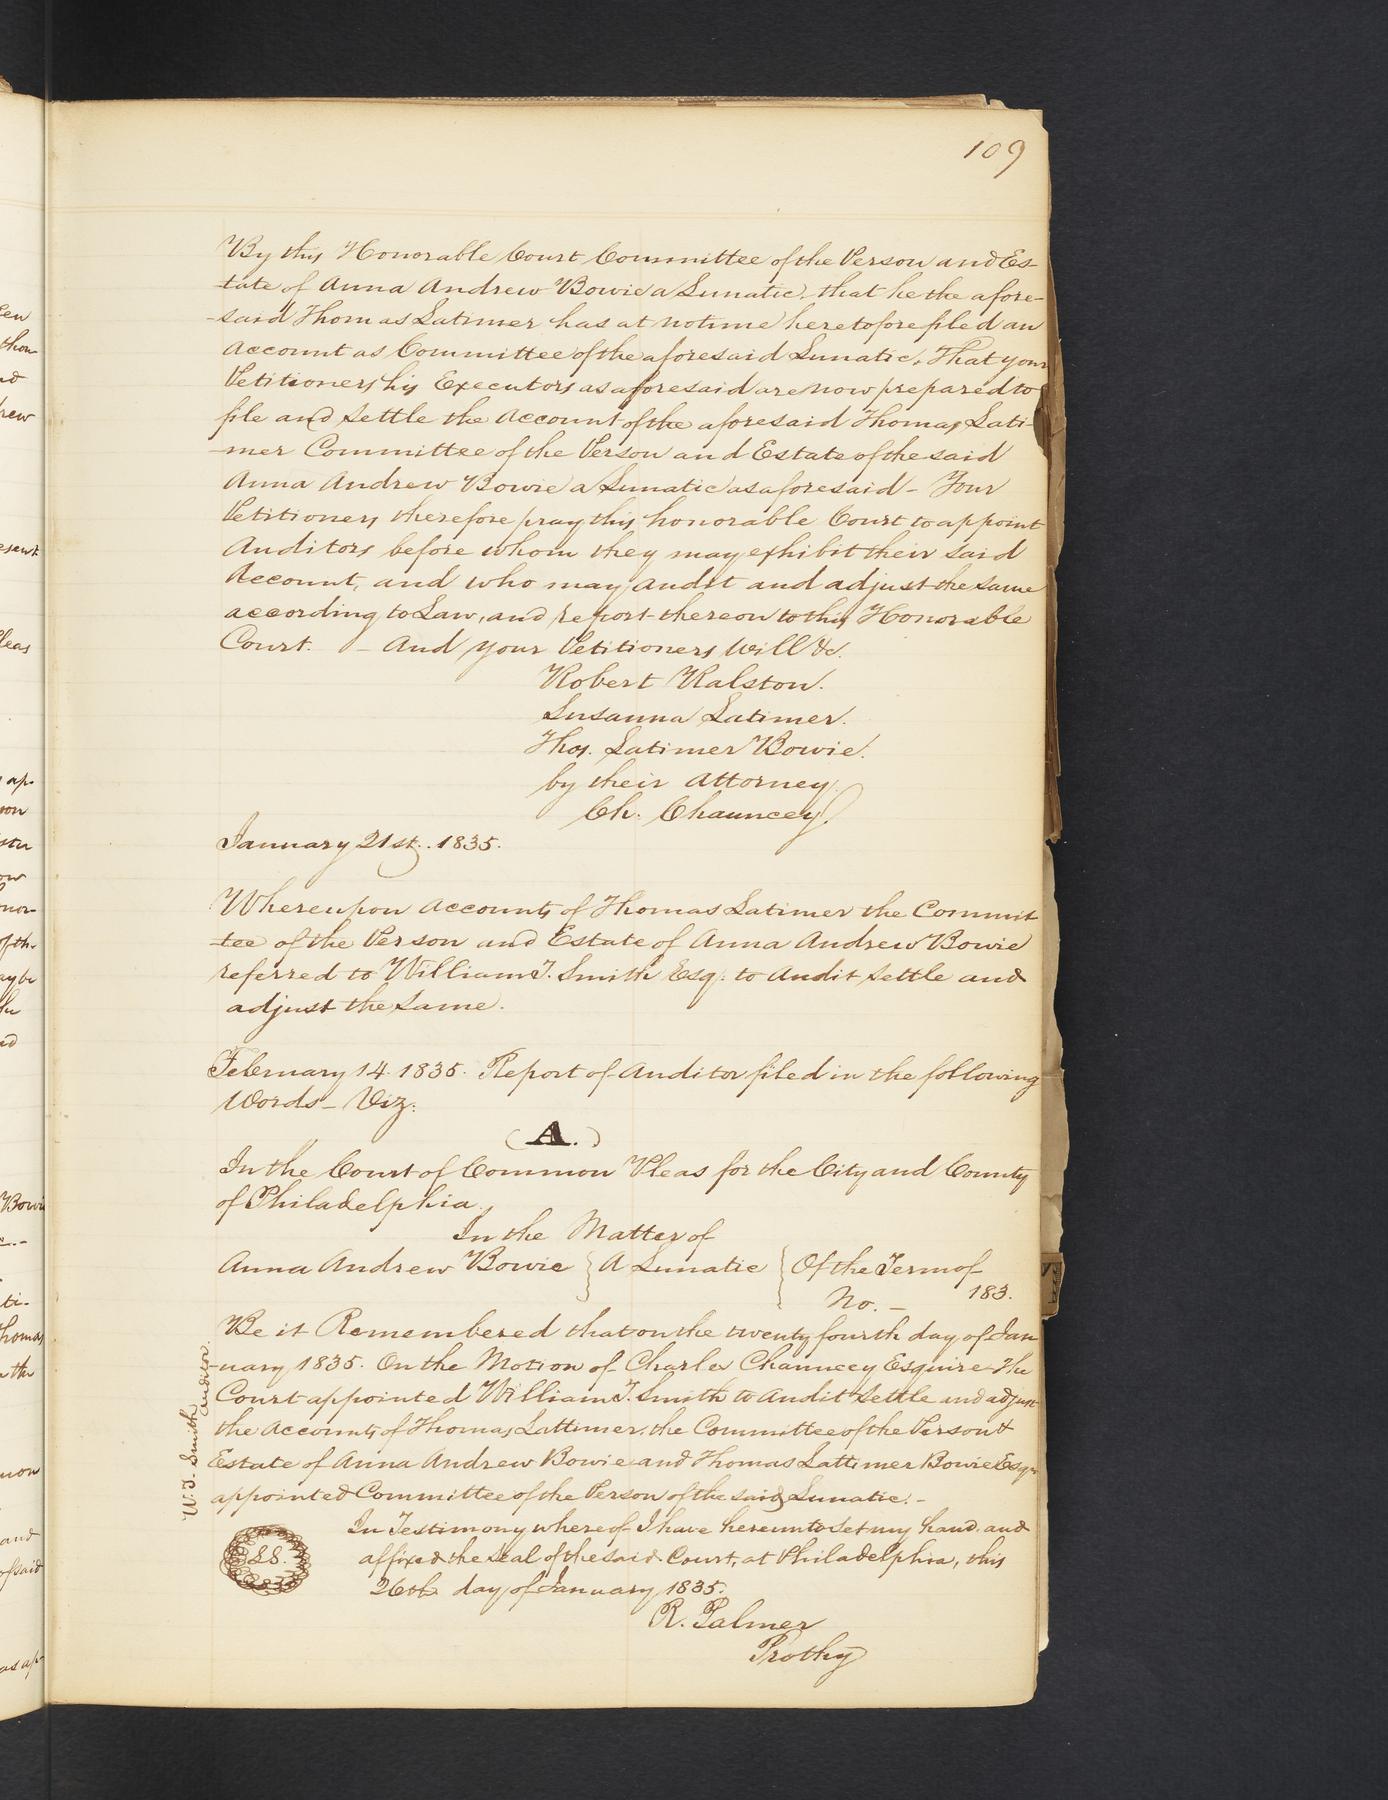 109
By this Honorable Court Committee of the Person and Es-
-tate of Anna Andrew Bowie a Lunatic, that he the afore-
-said Thomas Latimer has at no time heretofore filed an
Account as Committee of the aforesaid Lunatic. That your
Petitioners his Executors as aforesaid are now prepared to
file and settle the Account of the aforesaid Thomas Lati-
-mer Committee of the Person and Estate of the said
Anna Andrew Bowie a Lunatic as aforesaid - Your
Petitioners therefore pray this honorable Court to appoint
Auditors before whom they may exhibit their said
Account, and who may audit and adjust the same
according to Law, and report thereon to this Honorable
Court. - And your Petitioners will &c.
Robert Ralston.
Susanna Latimer.
Thos. Latimer Bowie.
by their Attorney.
Ch. Chauncey.
January 21st. 1835.
Whereupon Accounts of Thomas Latimer the Commit
-tee of the Person and Estate of Anna Andrew Bowie
referred to William T. Smith Esq. to Audit settle and
adjust the same.
February 14. 1835. Report of Auditor filed in the following
Words - Viz:
(A.)
In the Court of Common Pleas for the City and County
of Philadelphia.
In the Matter of
Anna Andrew Bowie } A Lunatic } Of the Term of
183.
No. -
Be it Remembered that on the twenty fourth day of Jan
-uary 1835. On the Motion of Charles Chauncey Esquire the
Court appointed William T. Smith to Audit settle and adjust
the Accounts of Thomas Lattimer, the Committee of the Person &
Estate of Anna Andrew Bowie and Thomas Lattimer Bowie Esqr
appointed Committee of the Person of the said Lunatic. -
W. T. Smith
Auditor.
In Testimony whereof I have hereunto set my hand and
affixed the seal of the said Court, at Philadelphia, this
26th day of January 1835.
L.S.
R. Palmer
Prothy